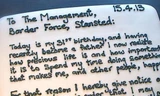 To The Management, 15.4.13
Border Force, Stansted:
Today is my 31st birthday, and having
recently become a father, I now realise
how precious life is and how important
it is to spend my time doing something
that makes me, and other people happy.
For that reason I hereby give notice